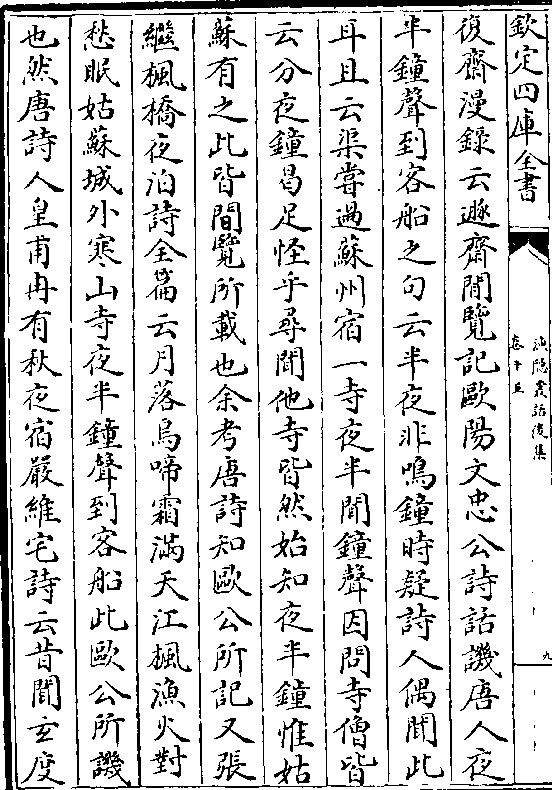 欽定四庫全書
漁隱叢話後集
卷十五
九
復齋漫錄云遯齋閒覽記歐陽文忠公詩話譏唐人夜
半鐘聲到客船之句云半夜非鳴鐘時疑詩人偶聞此
耳且云渠嘗過蘇州宿一寺夜半聞鐘聲因問寺僧皆
云分夜鐘曷足怪乎尋聞他寺皆然始知夜半鐘惟姑
蘇有之此皆閒覽所載也余考唐詩知歐公所記又張
繼楓橋夜泊詩全篇云月落烏啼霜滿天江楓漁火對
愁眠姑蘇城外寒山寺夜半鐘聲到客船此歐公所譏
也然唐詩人皇甫冉有秋夜宿嚴維宅詩云昔聞玄度